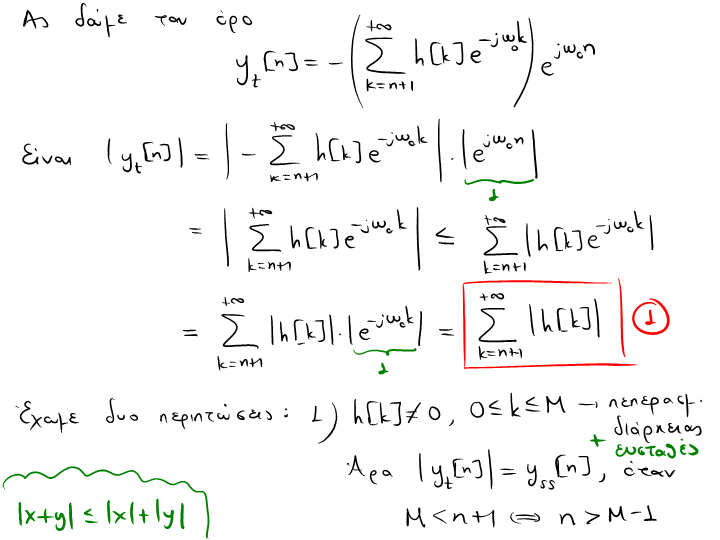 Ας δούμε τον όρο
y_t[n] = -(∑_{k=n+1}^{+∞} h[k] e^{-jω₀k}) e^{jω₀n}
Είναι |y_t[n]| = |-∑_{k=n+1}^{+∞} h[k] e^{-jω₀k}| · |e^{jω₀n}|
1
= |∑_{k=n+1}^{+∞} h[k] e^{-jω₀k}| ≤ ∑_{k=n+1}^{+∞} |h[k] e^{-jω₀k}|
= ∑_{k=n+1}^{+∞} |h[k]| · |e^{-jω₀k}| = ∑_{k=n+1}^{+∞} |h[k]| ①
1
Έχουμε δυο περιπτώσεις: 1) h[k] ≠ 0, 0 ≤ k ≤ M → πεπερασμ.
διάρκειας
+ ευσταθές
Άρα |y_t[n]| = y_ss[n], όταν
|x+y| ≤ |x|+|y|
M < n+1 ⇔ n > M-1